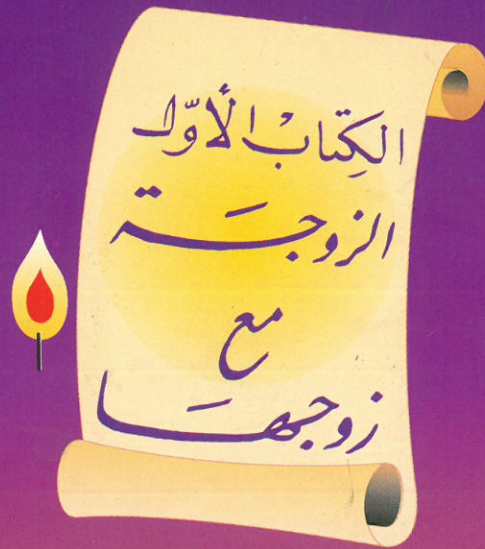 الكِتابْ الأوّل
الزوجَة
مع
زوجهَا